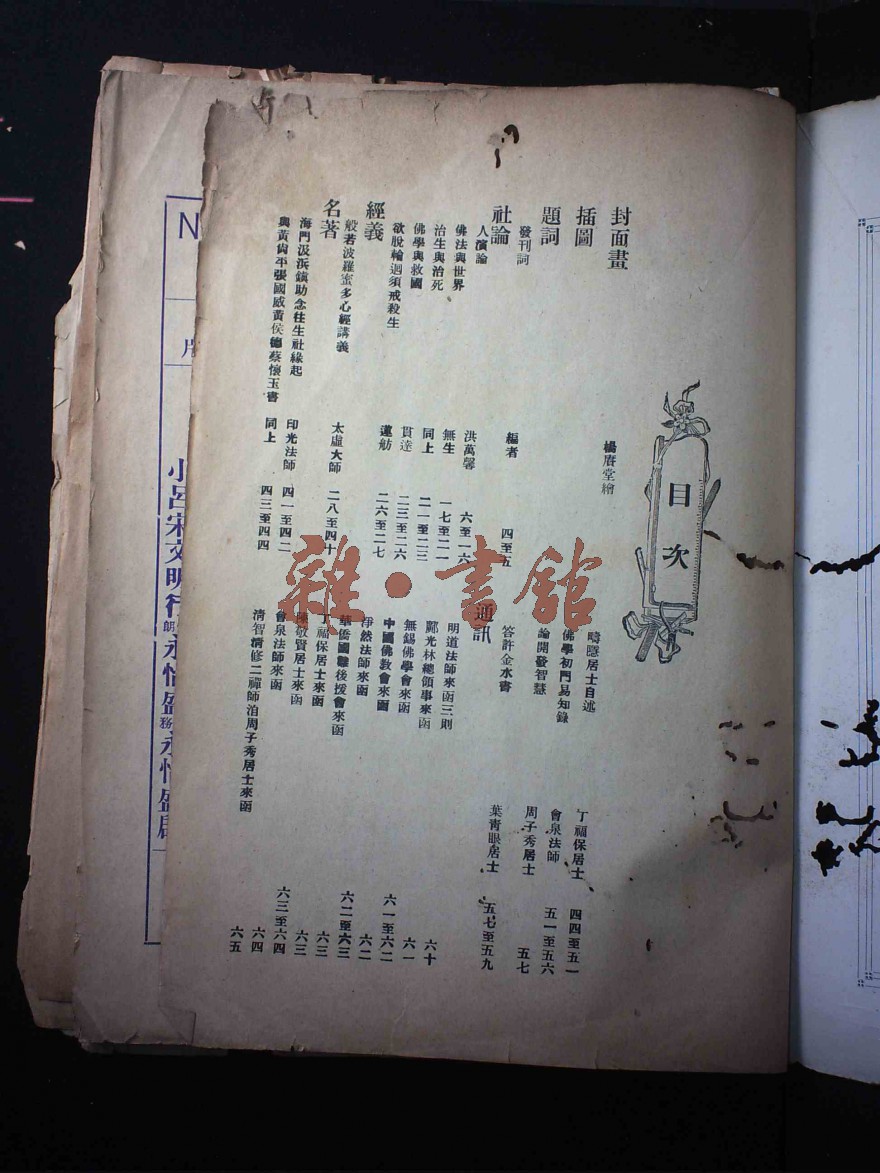 目次
封面畫 楊賡堂繪
插圖
題詞
發刊詞 編者 四至五
社論
人演論 洪萬馨 六至一六
佛法與世界 無生 一七至二一
治生與治死 同上 二一至二三
佛學與救國 貫達 二三至二六
欲脫輪迴須戒殺生 蓮舫 二六至二七
經義
般若波羅蜜多心經講義 太虛大師 二八至四十
名著
海門汲浜鎮助念往生社緣起 印光法師 四一至四二
與黃尚平張國威黃侯德蔡懷玉書 同上 四三至四四
疇隱居士自述 丁福保居士 四四至五一
佛學初門易知錄 會泉法師 五一至五六
論開發智慧 周子秀居士 五七
答許金水書 葉青眼居士 五七至五九
通訊
明道法師來函三則 六十
鄺光林總領事來函 六一
無錫佛學會來函 六一至六二
中國佛教會來函 六二
淨然法師來函 六二至六三
華僑國難後援會來函 六三
丁福保居士來函 六三
陳敬賢居士來函 六三至六四
會泉法師來函 六四
清智清修二禪師洎周子秀居士來函 六五
雜·書館
N
小呂宋文明行朗永怡盛務永怡盛局